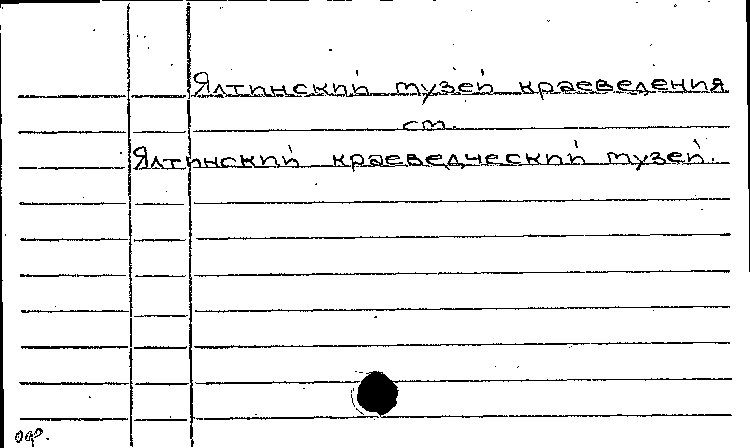 Ялтинский музей краеведения
см.
Ялтинский краеведческий музей.